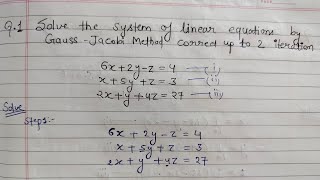 Q.1 Solve the system of linear equations by
Gauss-Jacobi Method corred up to 2 iteration
6x+2y-z = 4 — i)
x + 5y + z = 3 — (ii)
2x + y + 4z = 27 — (iii)
Solve
Step1:-
6x + 2y - z = 4
x + 5y + z = 3
2x + y + 4z = 27